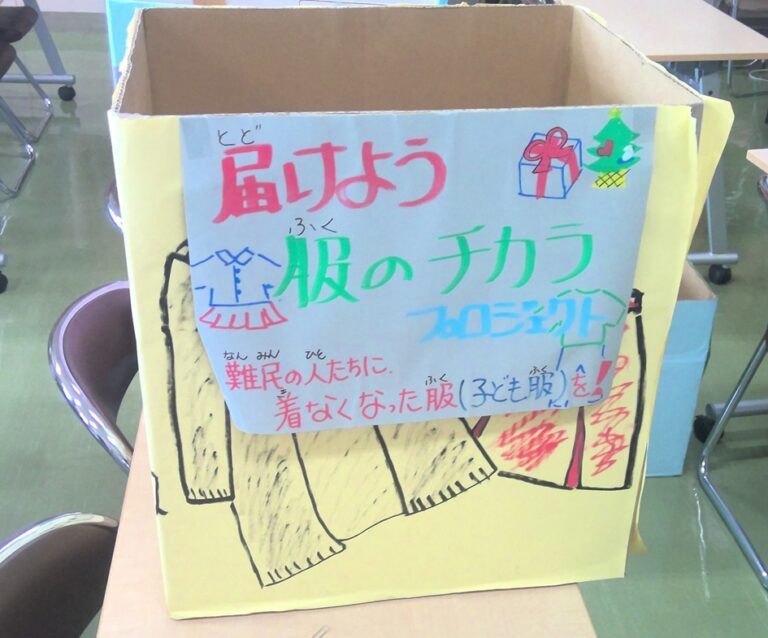 とど
届けよう
ふく
服のチカラ
プロジェクト
なんみん ひと
難民の人たちに
き ふく ふく
着なくなった服(子ども服)を!